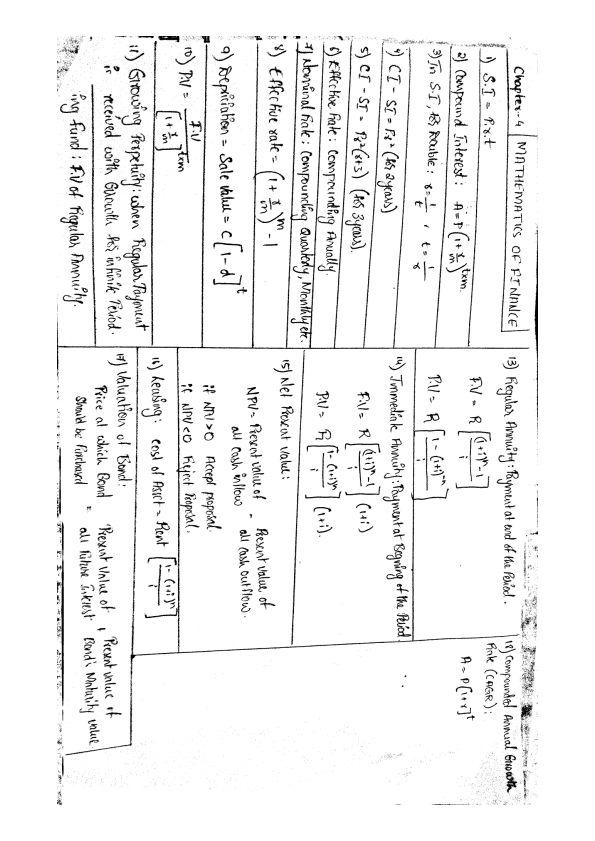 Chapter-4 MATHEMATICS OF FINANCE
1) S.I = P.r.t
2) Compound Interest: A = P(1+r/m)^txm.
3) In S.I, to Double: r = 1/t, t = 1/r
4) CI - SI = Pr² (for 2 years)
5) CI - SI = Pr²(r+3) (for 3 years).
6) Effective Rate: Compounding Anually.
7) Nominal Rate: Compounding Quarterly, Monthly etc.
8) Effective rate = (1+r/m)^m - 1
9) Depriciation = Sale value = C[1-d]^t
10) P.V = F.V/[1+r/m]^txm
11) Growing Perpetuity: when Regular Payment
is received with Growth for infinite Period.
ing Fund: F.V of Regular Annuity.
13) Regular Annuity: Payment at end of the Period.
F.V = R[((1+i)^n-1)/i]
P.V = R[(1-(1+i)^-n)/i]
14) Immediate Annuity: Payment at Begning of the Period
F.V = R[((1+i)^n-1)/i](1+i)
P.V = R[(1-(1+i)^n)/i](1+i).
15) Net Present Value:
NPV = Present value of all cash inflow - Present Value of all cash outflow.
if NPV>0 Accept proposal
if NPV<0 Reject Proposal.
16) Leasing: Cost of Asset = Rent[(1-(1+i)^n)/i]
17) Valuation of Bond:
Price at which Bond should be Purchased = Present Value of all Future Interest + Present value of Bond's Maturity value
18) Compounded Annual Growth
Rate (CAGR):
A = P[1+r]^t